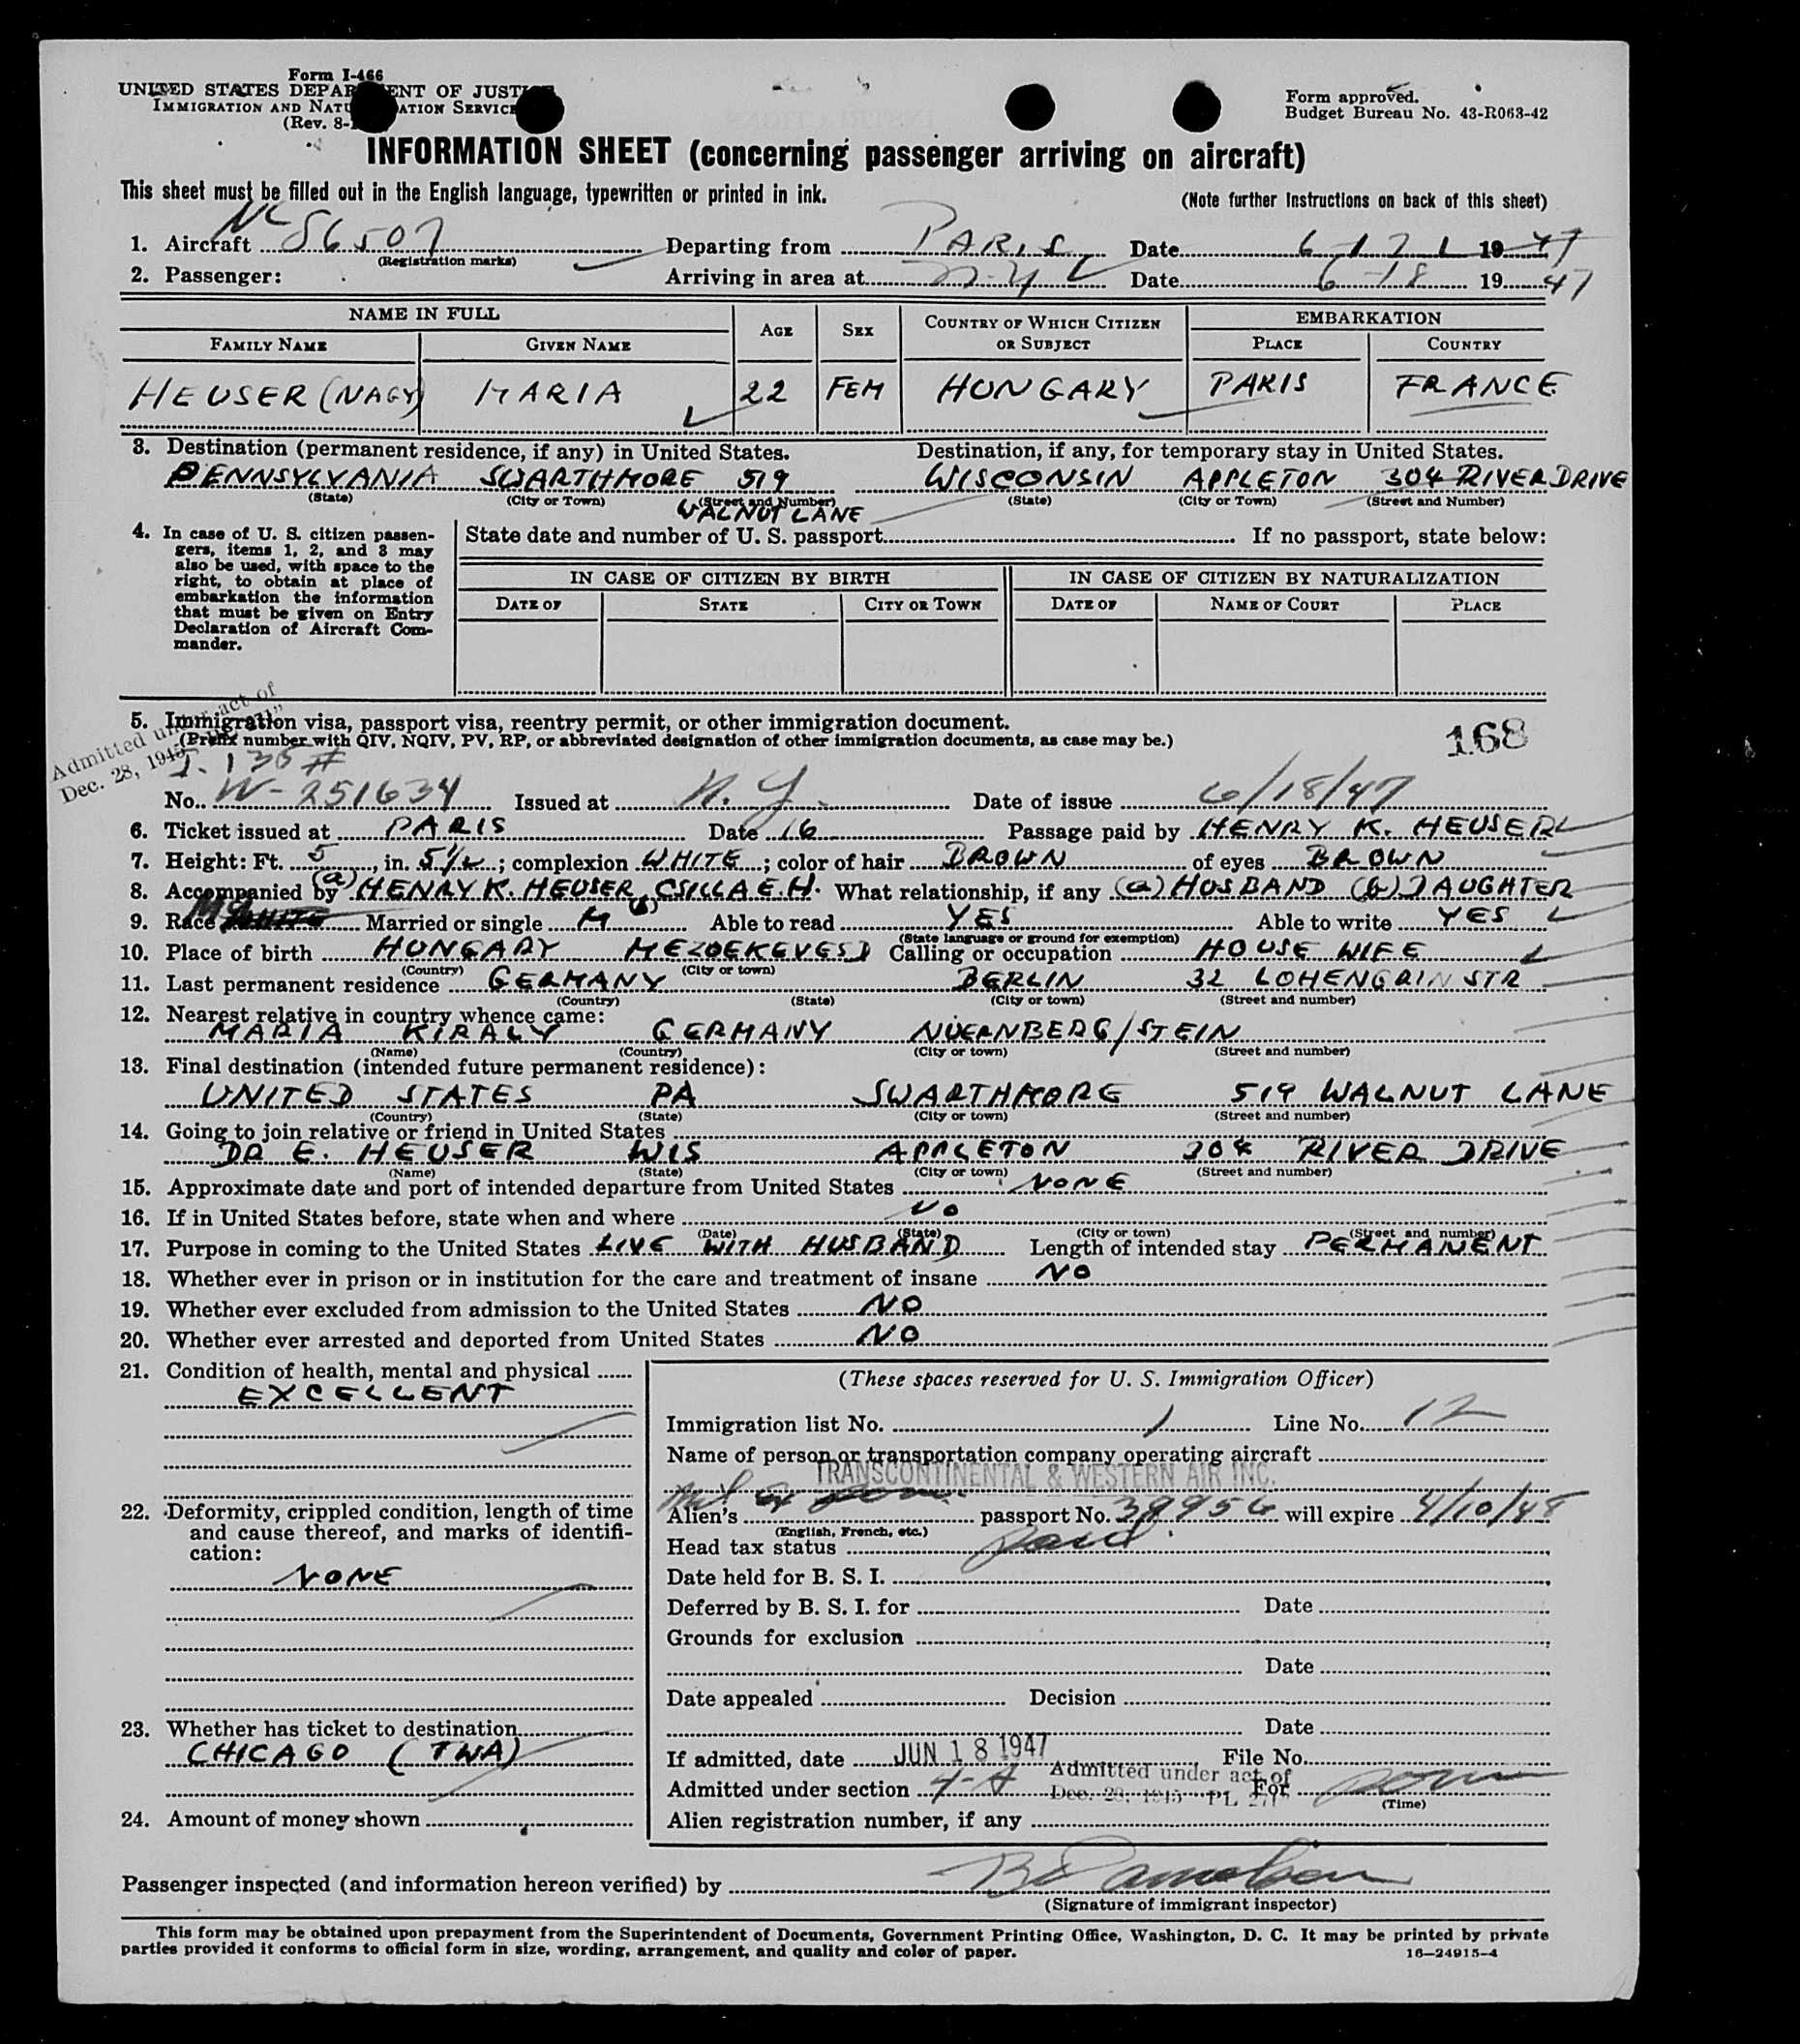 Form I-466
UNITED STATES DEPARTMENT OF JUSTICE
IMMIGRATION AND NATURALIZATION SERVICE
(Rev. 8-
Form approved.
Budget Bureau No. 43-R063-42
INFORMATION SHEET (concerning passenger arriving on aircraft)
This sheet must be filled out in the English language, typewritten or printed in ink. (Note further instructions on back of this sheet)
1. Aircraft NC 86507 Departing from PARIS Date 6-17 1947
(Registration marks)
2. Passenger: Arriving in area at N.Y. Date 6-18 1947
NAME IN FULL AGE SEX COUNTRY OF WHICH CITIZEN OR SUBJECT EMBARKATION
FAMILY NAME GIVEN NAME PLACE COUNTRY
HEUSER (NAGY) MARIA 22 FEM HONGARY PARIS FRANCE
3. Destination (permanent residence, if any) in United States. Destination, if any, for temporary stay in United States.
PENNSYLVANIA SWARTHMORE 519 WISCONSIN APPLETON 304 RIVER DRIVE
(State) (City or Town) (Street and Number) (State) (City or Town) (Street and Number)
WALNUT LANE
4. In case of U. S. citizen passengers, items 1, 2, and 3 may
also be used, with space to the
right, to obtain at place of
embarkation the information
that must be given on Entry
Declaration of Aircraft Commander.
State date and number of U. S. passport If no passport, state below:
IN CASE OF CITIZEN BY BIRTH IN CASE OF CITIZEN BY NATURALIZATION
DATE OF STATE CITY OR TOWN DATE OF NAME OF COURT PLACE
Admitted under act of
Dec. 28, 1945
5. Immigration visa, passport visa, reentry permit, or other immigration document.
(Prefix number with QIV, NQIV, PV, RP, or abbreviated designation of other immigration documents, as case may be.)
168
I. 135 #
No. W-251634 Issued at N.Y. Date of issue 6/18/47
6. Ticket issued at PARIS Date 16 Passage paid by HENRY K. HEUSER
7. Height: Ft. 5, in. 5½; complexion WHITE; color of hair BROWN of eyes BROWN
8. Accompanied by (a) HENRY K. HEUSER, (b) CSILLA E.H. What relationship, if any (a) HUSBAND (b) DAUGHTER
9. Race Mg WHITE Married or single M Able to read YES Able to write YES
(State language or ground for exemption)
10. Place of birth HUNGARY MEZOEKEVESD Calling or occupation HOUSE WIFE
(Country) (City or town)
11. Last permanent residence GERMANY BERLIN 32 LOHENGRIN STR
(Country) (State) (City or town) (Street and number)
12. Nearest relative in country whence came:
MARIA KIRALY GERMANY NUERNBERG/STEIN
(Name) (Country) (City or town) (Street and number)
13. Final destination (intended future permanent residence):
UNITED STATES PA SWARTHMORE 519 WALNUT LANE
(Country) (State) (City or town) (Street and number)
14. Going to join relative or friend in United States
DR E. HEUSER WIS APPLETON 304 RIVER DRIVE
(Name) (State) (City or town) (Street and number)
15. Approximate date and port of intended departure from United States NONE
16. If in United States before, state when and where NO
(Date) (State) (City or town) (Street and number)
17. Purpose in coming to the United States LIVE WITH HUSBAND Length of intended stay PERMANENT
18. Whether ever in prison or in institution for the care and treatment of insane NO
19. Whether ever excluded from admission to the United States NO
20. Whether ever arrested and deported from United States NO
21. Condition of health, mental and physical
EXCELLENT
22. Deformity, crippled condition, length of time
and cause thereof, and marks of identification:
NONE
23. Whether has ticket to destination
CHICAGO (TWA)
24. Amount of money shown
(These spaces reserved for U. S. Immigration Officer)
Immigration list No. 1 Line No. 12
Name of person or transportation company operating aircraft
TRANSCONTINENTAL & WESTERN AIR INC.
Alien's passport No. 39956 will expire 4/10/48
(English, French, etc.)
Head tax status paid
Date held for B. S. I.
Deferred by B. S. I. for Date
Grounds for exclusion
Date
Date appealed Decision
Date
If admitted, date JUN 18 1947 File No.
Admitted under section 4-A Admitted under act of Dec. 28, 1945 PL 271 For perm
(Time)
Alien registration number, if any
Passenger inspected (and information hereon verified) by
(Signature of immigrant inspector)
This form may be obtained upon prepayment from the Superintendent of Documents, Government Printing Office, Washington, D. C. It may be printed by private
parties provided it conforms to official form in size, wording, arrangement, and quality and color of paper. 16—24915-4